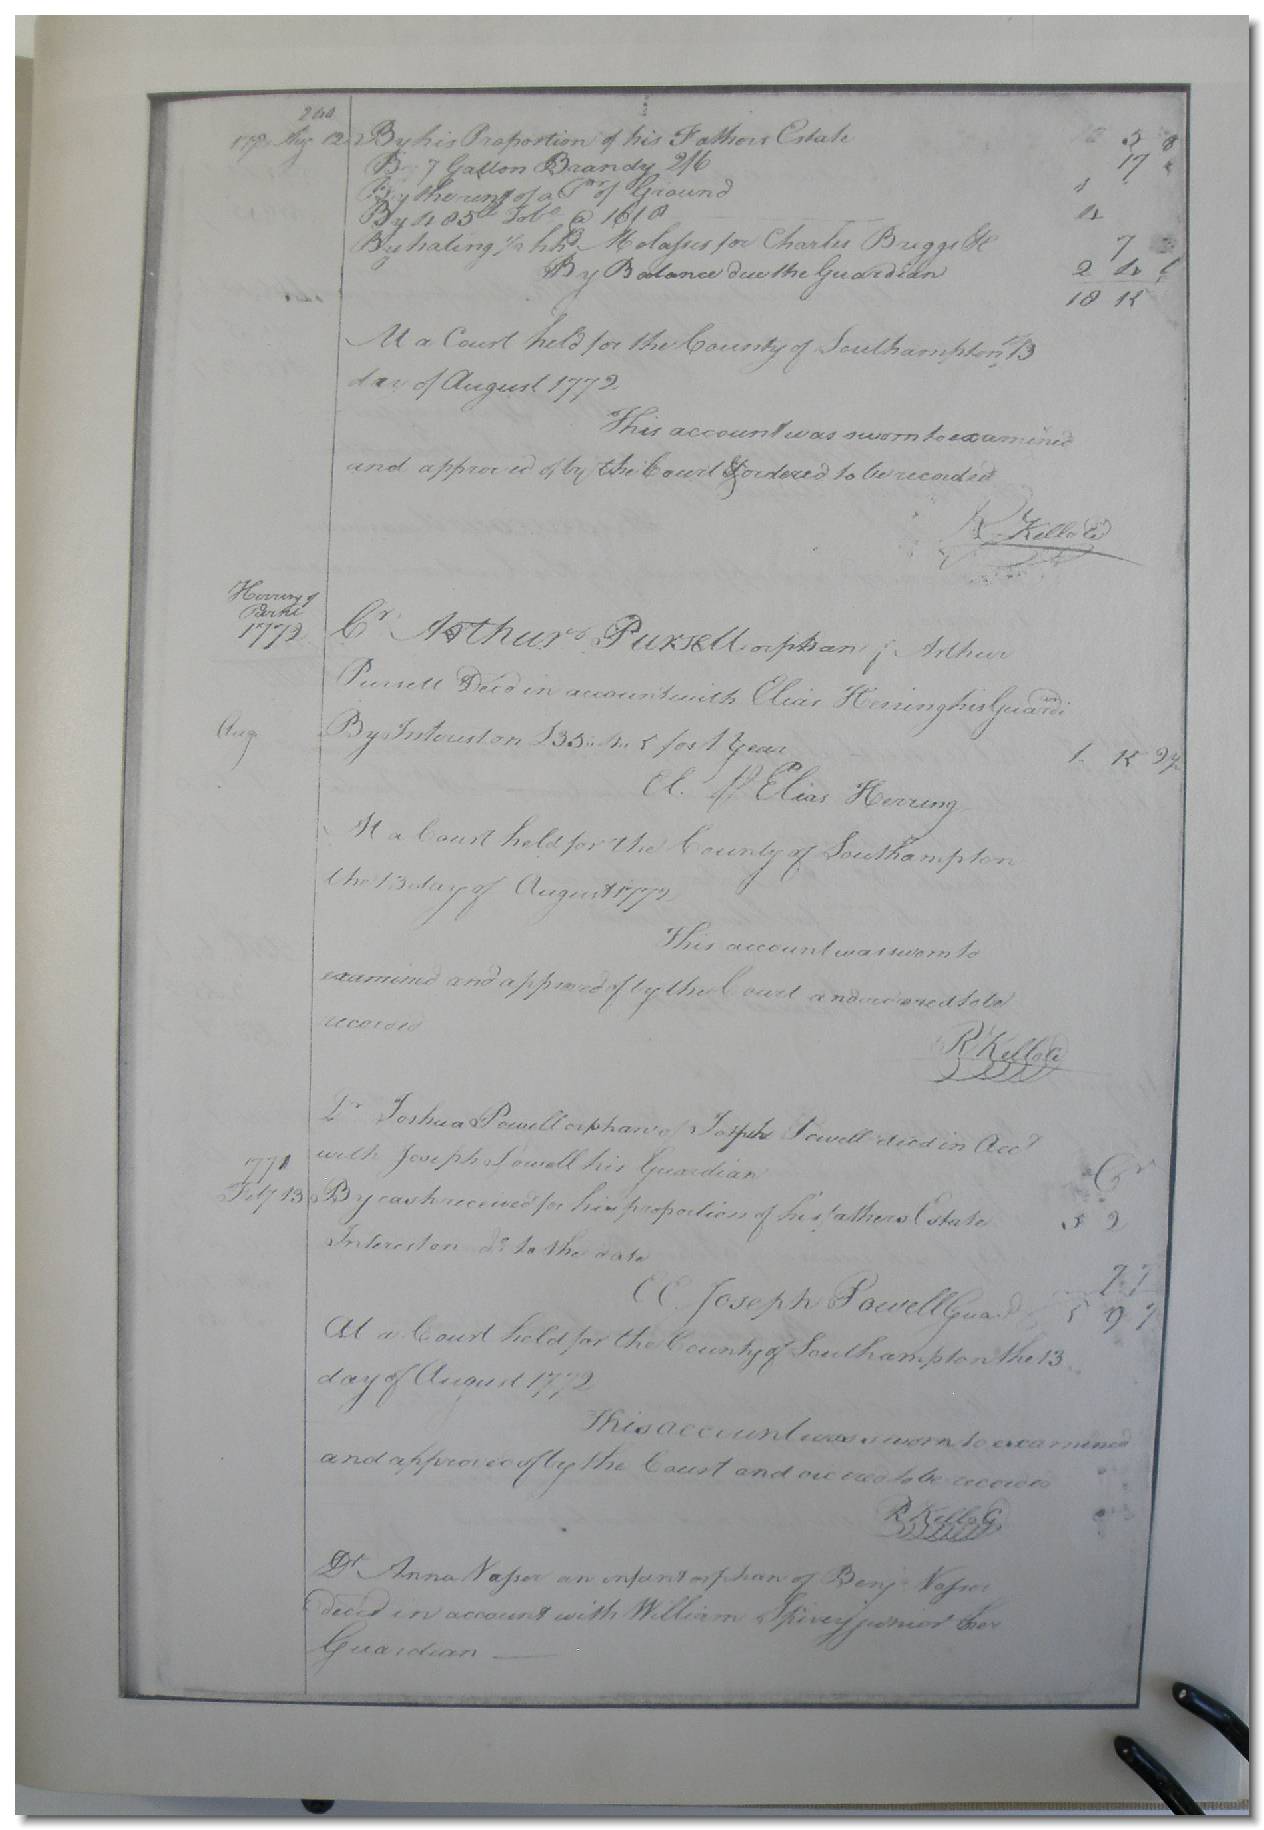 Aug 12 By his Proportion of his Fathers Estate
By 7 Gallon Brandy 2/6 17
By the rent of a of Ground
By 485 Tobo @ 16/8
By haling hhd Molasses for Charles Briggs &c 7
By Balance due the Guardian 2
18
At a Court held for the County of Southampton 13
day of August 1772
This account was sworn to examined
and approved of by the Court & ordered to be recorded
R Kello
Herring &
1772 Cr Arthur Pursell orphan of Arthur
Pursell Decd in account with Elias Herring his Guardian
Aug By Interest on for 1 Year 1
Elias Herring
At a Court held for the County of Southampton
the 13 day of August 1772
This account was sworn to
examined and approved of by the Court and ordered to be
recorded
R Kello
Dr Joshua Powell orphan of Joseph Powell decd in Acct
with Joseph Powell his Guardian Cr
1771
Feby 13 By cash received for his proportion of his fathers Estate 5 2
Interest on do to the date 7 7
EE. Joseph Powell Guard 5 9 7
At a Court held for the County of Southampton the 13
day of August 1772
This account was sworn to examined
and approved of by the Court and ordered to be recorded
R Kello
Dr Anna an infant orphan of Benj
decd in account with William Spivey junior her
Guardian